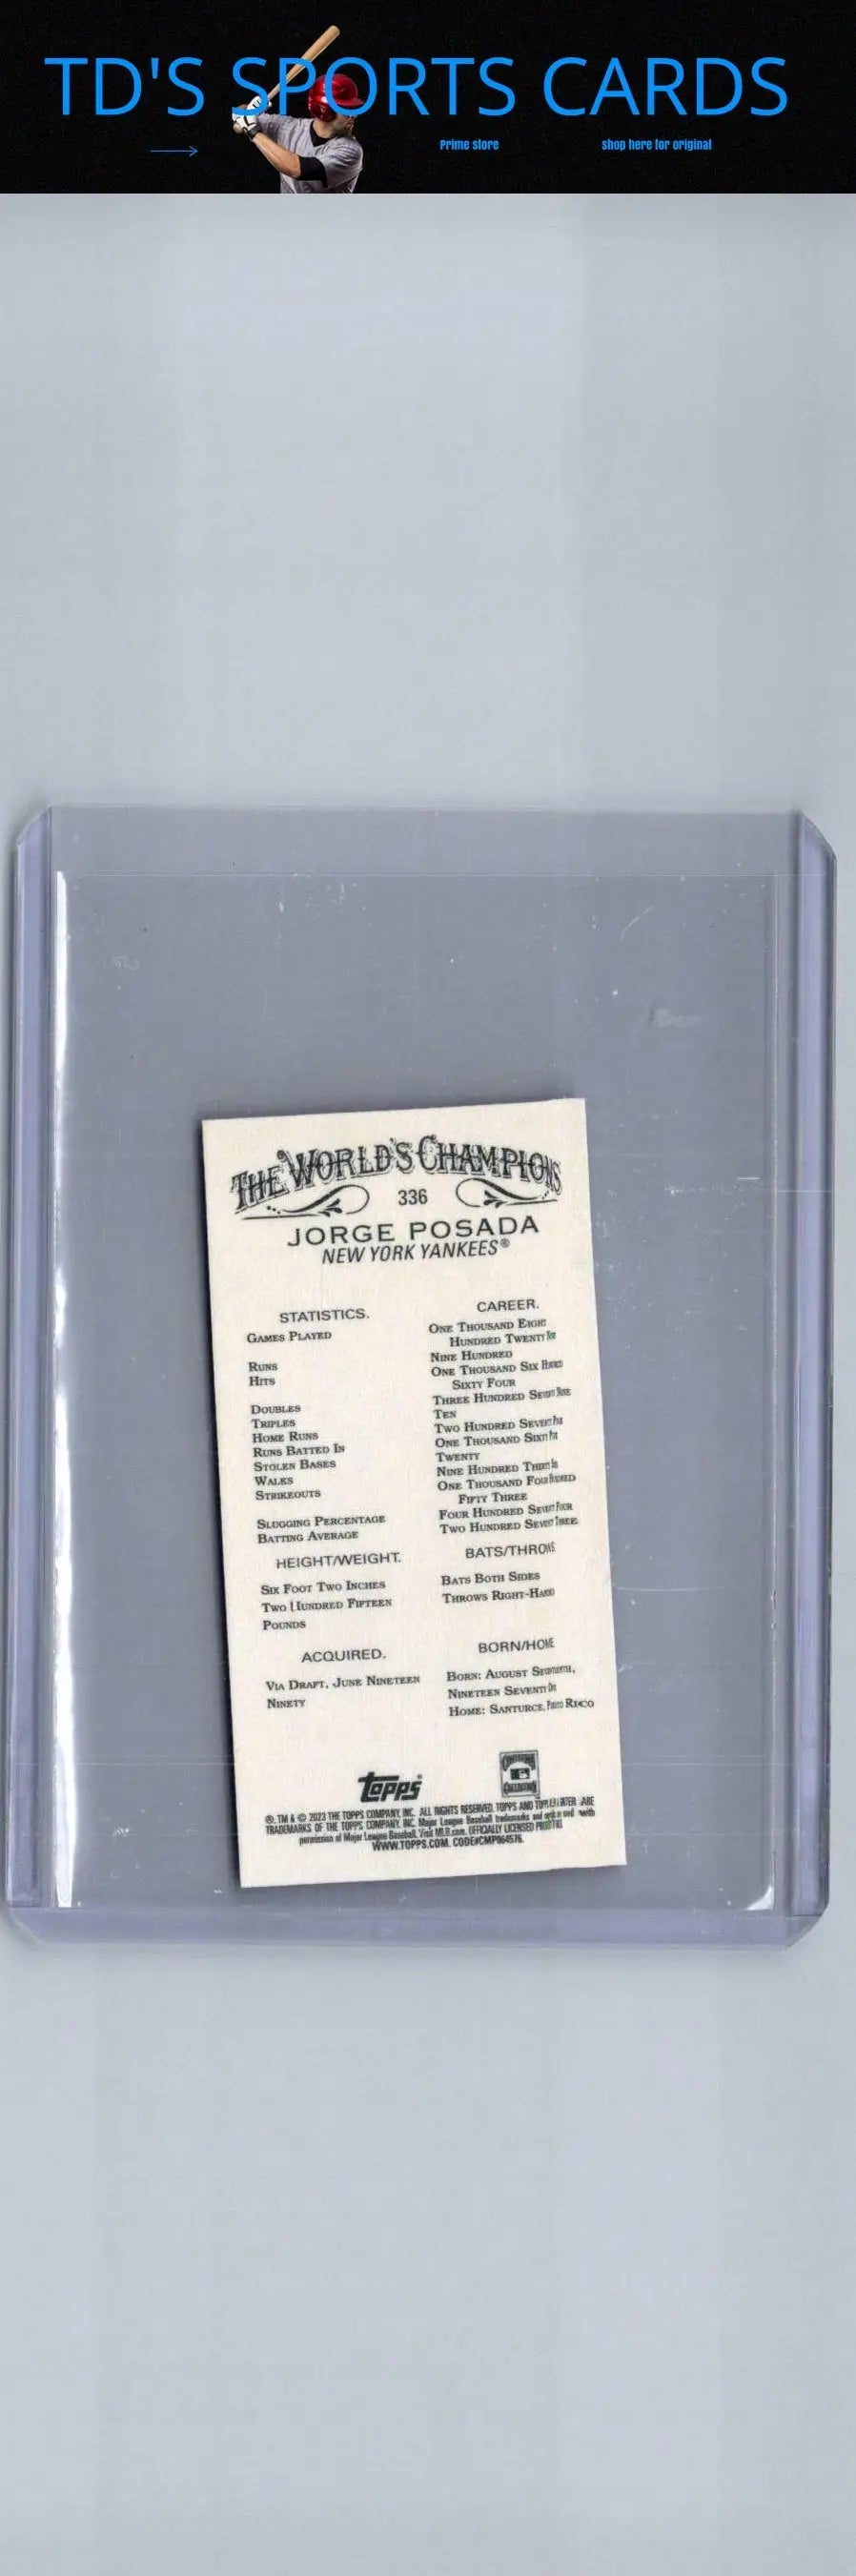 TD'S SPORTS CARDS
Prime store
shop here for original
THE WORLD'S CHAMPIONS
336
JORGE POSADA
NEW YORK YANKEES®
STATISTICS.
CAREER.
GAMES PLAYED
ONE THOUSAND EIGHT
HUNDRED TWENTY
RUNS
NINE HUNDRED
HITS
ONE THOUSAND SIX HUNDRED
SIXTY FOUR
DOUBLES
THREE HUNDRED SEVENTY NINE
TRIPLES
TEN
HOME RUNS
TWO HUNDRED SEVENTY FIVE
RUNS BATTED IN
ONE THOUSAND SIXTY FIVE
STOLEN BASES
TWENTY
WALKS
NINE HUNDRED THIRTY SIX
STRIKEOUTS
ONE THOUSAND FOUR HUNDRED
FIFTY THREE
SLUGGING PERCENTAGE
FOUR HUNDRED SEVENTY FOUR
BATTING AVERAGE
TWO HUNDRED SEVENTY THREE
HEIGHT/WEIGHT.
BATS/THROWS
SIX FOOT TWO INCHES
BATS BOTH SIDES
TWO HUNDRED FIFTEEN
POUNDS
THROWS RIGHT-HAND
ACQUIRED.
BORN/HOME
VIA DRAFT, JUNE NINETEEN
NINETY
BORN: AUGUST SEVENTEENTH,
NINETEEN SEVENTY ONE
HOME: SANTURCE, PUERTO RICO
topps®
®, TM & © 2023 THE TOPPS COMPANY, INC. ALL RIGHTS RESERVED. TOPPS AND
TRADEMARKS OF THE TOPPS COMPANY, INC. Major League Baseball trademarks and with
permission of Major League Baseball. Visit MLB.com. OFFICIALLY LICENSED
WWW.TOPPS.COM. CODE#CMP064576.